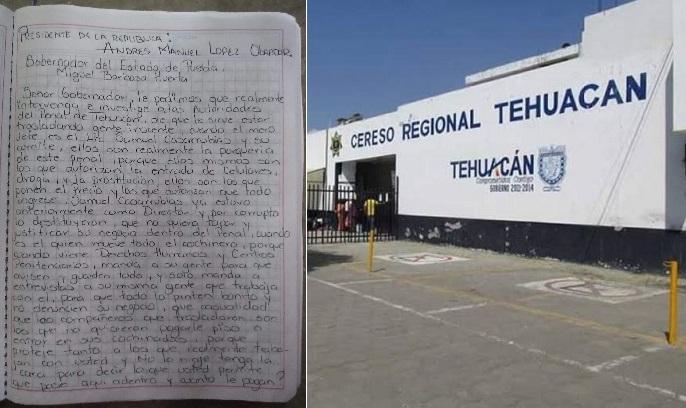 PRESIDENTE DE LA REPUBLICA:
ANDRES MANUEL LOPEZ OBRADOR.
Gobernador del Estado de Puebla
Miguel Barbosa Huerta
Señor Gobernador, le pedimos que realmente
intervenga e investigue a las autoridades
del Penal de Tehuacan, de que le sirve estar
trasladando gente inocente, cuando el mero
Jefe es el Lic. Samuel Cazarrubias y su
gente, ellos son realmente la porqueria
de este penal, porque ellos mismos son
los que autorizan la entrada de celulares,
droga, y la prostitución ellos son los que
ponen el precio y los que autorizan que todo
ingrese. Samuel Cazarrubias ya estuvo
anteriormente como Director y por corrupto
lo destituyeron, que no quiera tapar y
justificar su negocio dentro del penal, cuando
es el quien mueve todo el cochinero, porque
cuando viene Derechos Humanos y Centros
Penitenciarios, manda a su gente para que
avisen y guarden todo, y solo manda a
entrevistas a su misma gente que trabaja
con el, para que todo lo pinten bonito y
no denuncien su negocio, que casualidad
que los compañeros que trasladaron son
los que no quisieron pagarle piso o
entrar en sus cochinadas, porque
protege tanto a los que realmente
con usted, y No lo niege tenga la
cara para decir lo que usted permite
que pase aqui adentro y cuanto le pagan?
CERESO REGIONAL TEHUACAN
TEHUACÁN
Comprometidos Contigo
GOBIERNO 2011-2014